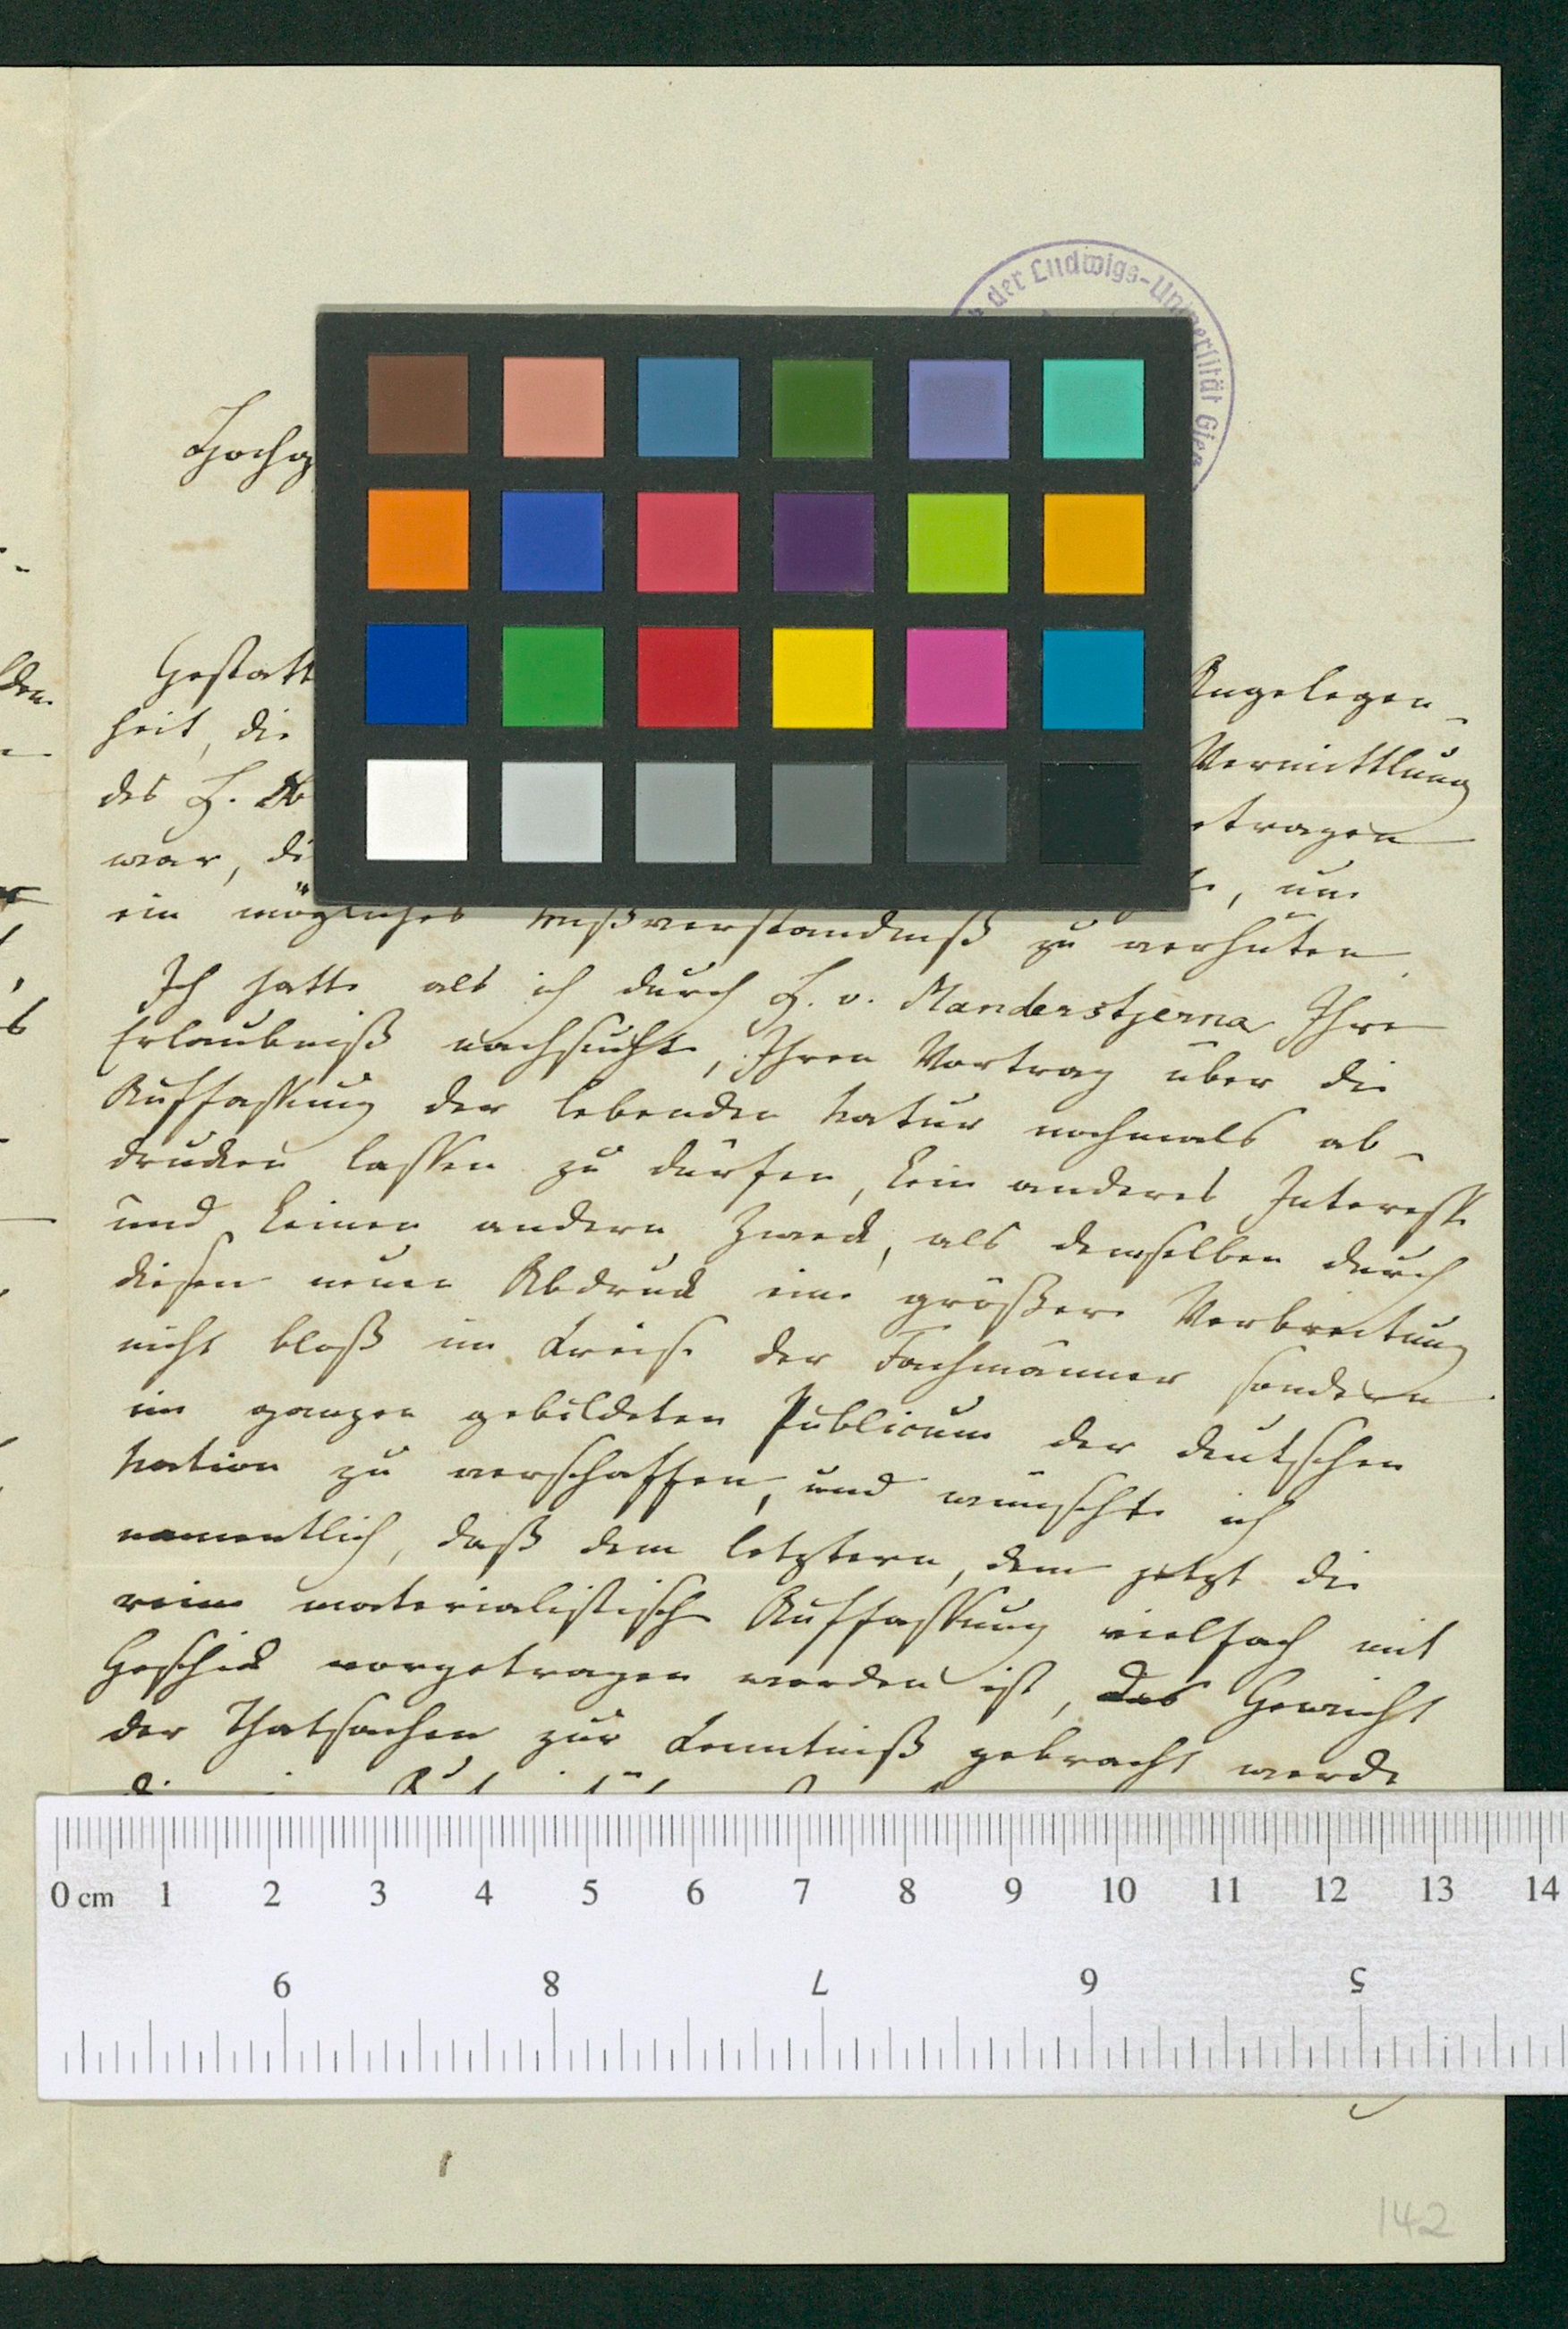 der Ludwigs-Universität Gies
Hochg
Gestatt
Angelegen-
heit, die
Vermittlung
des H.
etragen
war, di
, um
ein mögliches Mißverständniß zu verhüten.
Ich hatte als ich durch H. v. Manderstjerna Ihre
Erlaubniß nachsuchte, Ihren Vortrag über die
Auffassung der lebenden Natur nochmals ab-
drucken lassen zu dürfen, kein anderes Interesse
und keinen andern Zweck, als demselben durch
diesen neuen Abdruck eine größere Verbreitung
nicht bloß im Kreise der Fachmänner sondern
im ganzen gebildeten Publicum der deutschen
Nation zu verschaffen, und wünschte ich
namentlich, daß dem letztern, dem jetzt die
reine materialistische Auffassung vielfach mit
Geschick vorgetragen worden ist, das Gewicht
der Thatsachen zur Kenntniß gebracht werde
0 cm 1 2 3 4 5 6 7 8 9 10 11 12 13 14
9 8 7 6 5
142